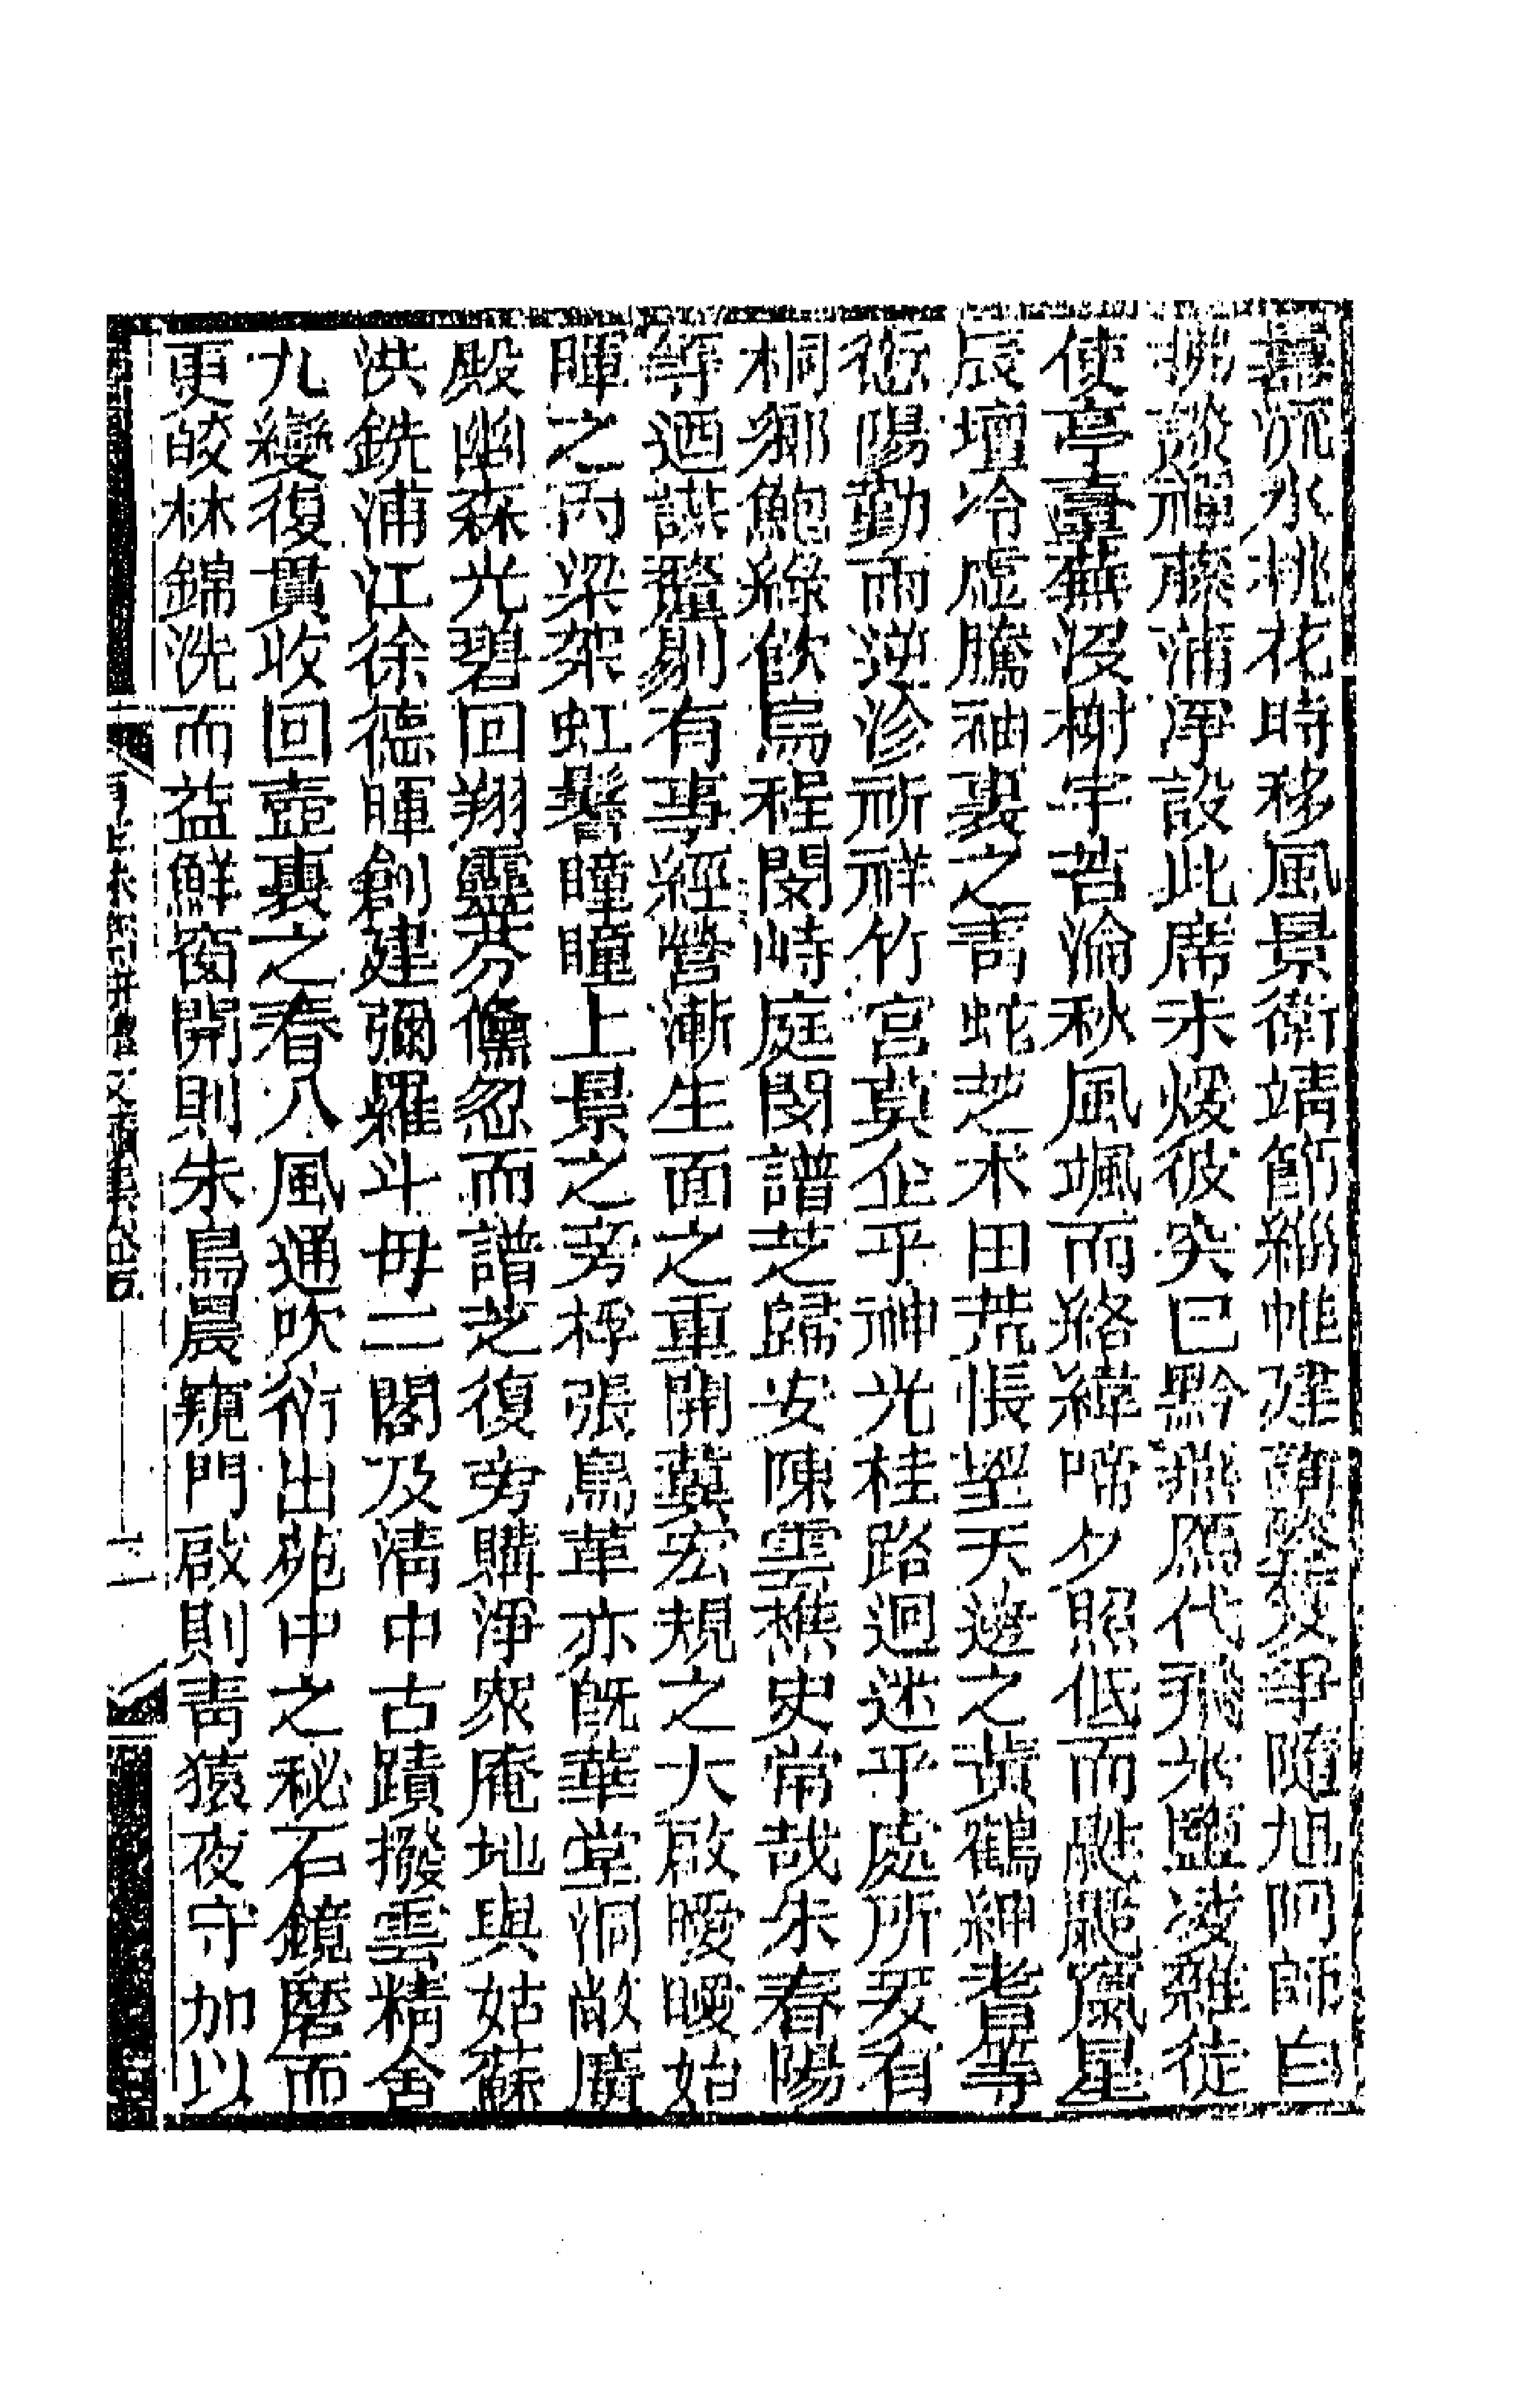 流水桃花時移風景衛靖節緇帷建爭隨旭阿師自
拂禪藤蒲淨設此席未煖彼突已黔燕鴈代飛氷鹽凌雜徒
使亭臺蕪沒榭宇菭淪秋風颯而絡緯啼夕照低而鼪鼯竄星
辰壇冷虛騰袖裏之靑蛇芝朮田荒悵望天邊之黃鶴紳耆等
愆陽勤雨逆沴祈祥竹宮莫企乎神光桂路迴迷乎處所爰有
桐鄕鮑綠飮烏程閔峙庭閔譜芝歸安陳雲樵史常哉朱春陽
等迺謀釐剔有事經營漸生面之重開冀宏規之大啟曖曖始
暉之丙梁架虹鬐瞳瞳上景之旁桴張鳥革亦旣華堂洞敞廣
殿幽森光碧回翔靈棼儵忽而譜芝復旁購淨衆庵地與姑蘇
洪銑浦江徐德暉創建彌羅斗毋二閣及淸中古蹟撥雲精舍
九變復貫收回壺裏之春八風通吹衍出苑中之秘石鏡磨而
更皎林錦洗而益鮮窗開則朱鳥晨窺門啟則靑猿夜守加以
二